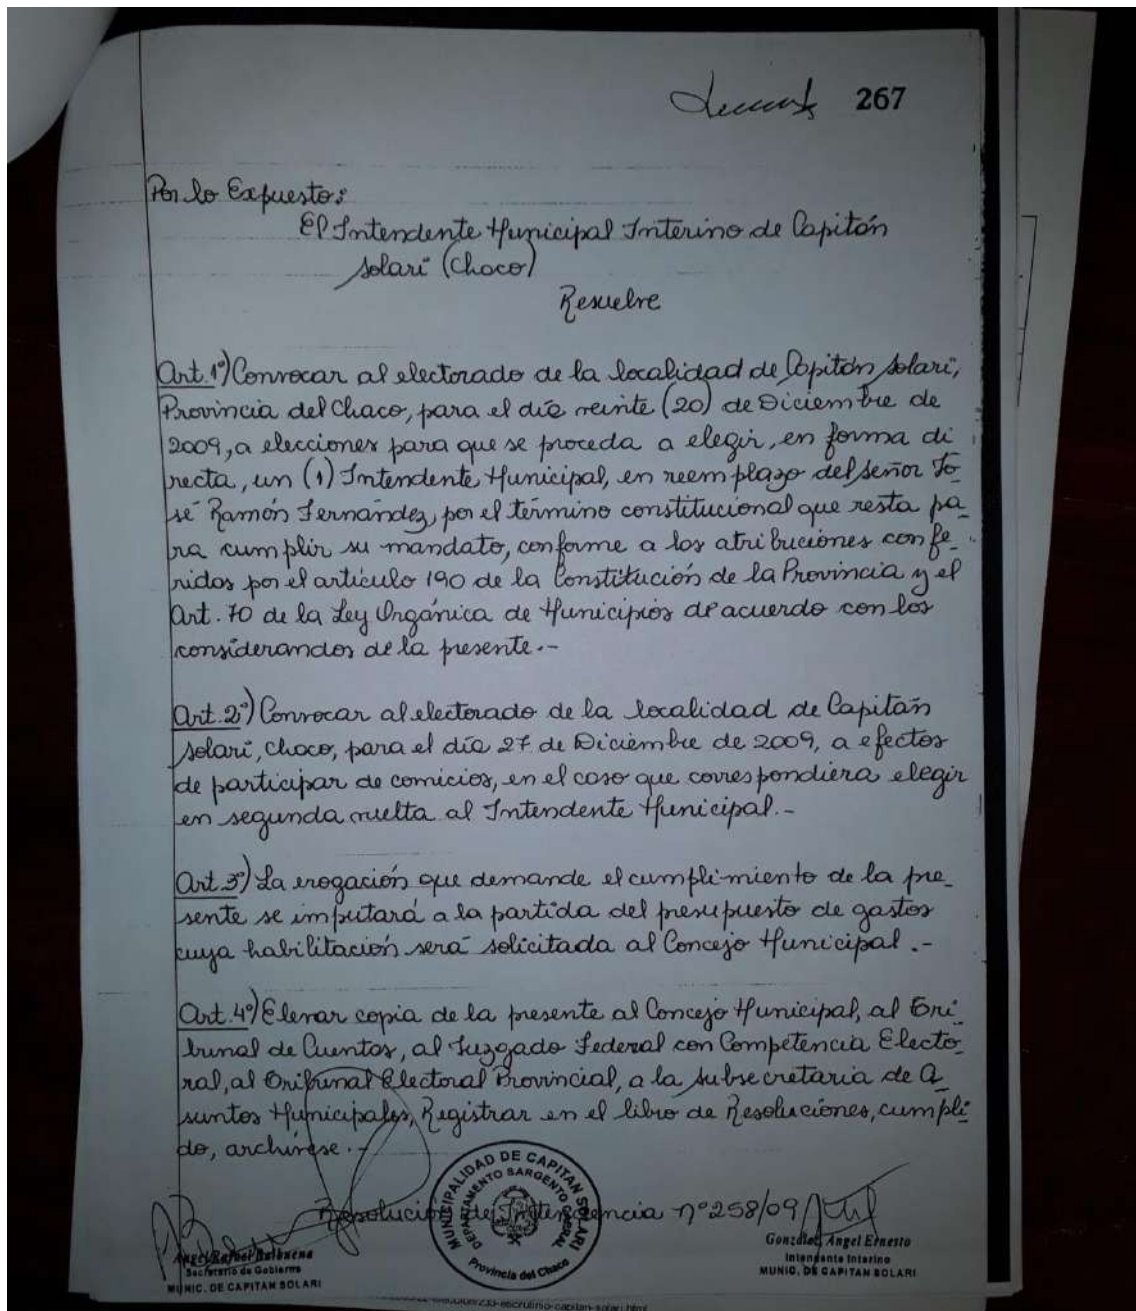 267
Por lo Expuesto:
El Intendente Municipal Interino de Capitán
Solari (Chaco)
Resuelve
Art. 1º) Convocar al electorado de la localidad de Capitán Solari,
Provincia del Chaco, para el día veinte (20) de Diciembre de
2009, a elecciones para que se proceda a elegir, en forma di
recta, un (1) Intendente Municipal, en reemplazo del señor Jo_
sé Ramón Fernández, por el término constitucional que resta pa_
ra cumplir su mandato, conforme a las atribuciones confe_
ridas por el artículo 190 de la Constitución de la Provincia y el
Art. 70 de la Ley Orgánica de Municipios de acuerdo con los
considerandos de la presente.-
Art. 2º) Convocar al electorado de la localidad de Capitán
Solari, Chaco, para el día 27 de Diciembre de 2009, a efectos
de participar de comicios, en el caso que correspondiera elegir
en segunda vuelta al Intendente Municipal.-
Art. 3º) La erogación que demande el cumplimiento de la pre_
sente se imputará a la partida del presupuesto de gastos
cuya habilitación será solicitada al Concejo Municipal.-
Art. 4º) Elevar copia de la presente al Concejo Municipal, al Tri_
bunal de Cuentas, al Juzgado Federal con Competencia Electo_
ral, al Tribunal Electoral Provincial, a la Subsecretaria de A_
suntos Municipales, Registrar en el libro de Resoluciones, cumpli_
do, archívese.-
Resolución de Intendencia nº 258/09
MUNICIPALIDAD DE CAPITAN SOLARI
DEPARTAMENTO SARGENTO CABRAL
Provincia del Chaco
Angel Rafael Balbuena
Secretario de Gobierno
MUNIC. DE CAPITAN SOLARI
Gonzalez, Angel Ernesto
Intendente Interino
MUNIC. DE CAPITAN SOLARI